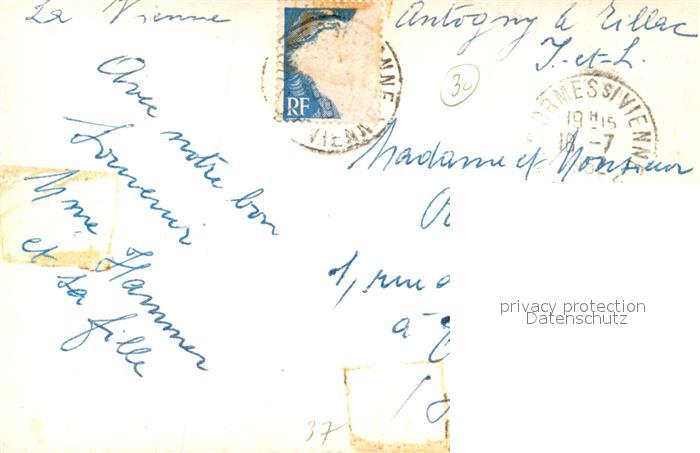 La Vienne
Antogny le Tillac
I.-et-L.
30
RF
VIENNE
ORMES S/VIENNE
19 H 15
18 -7
Avec notre bon
Souvenir
Mme Hammer
et sa fille
Madame et Monsieur
1, rue
à
37
privacy protection
Datenschutz